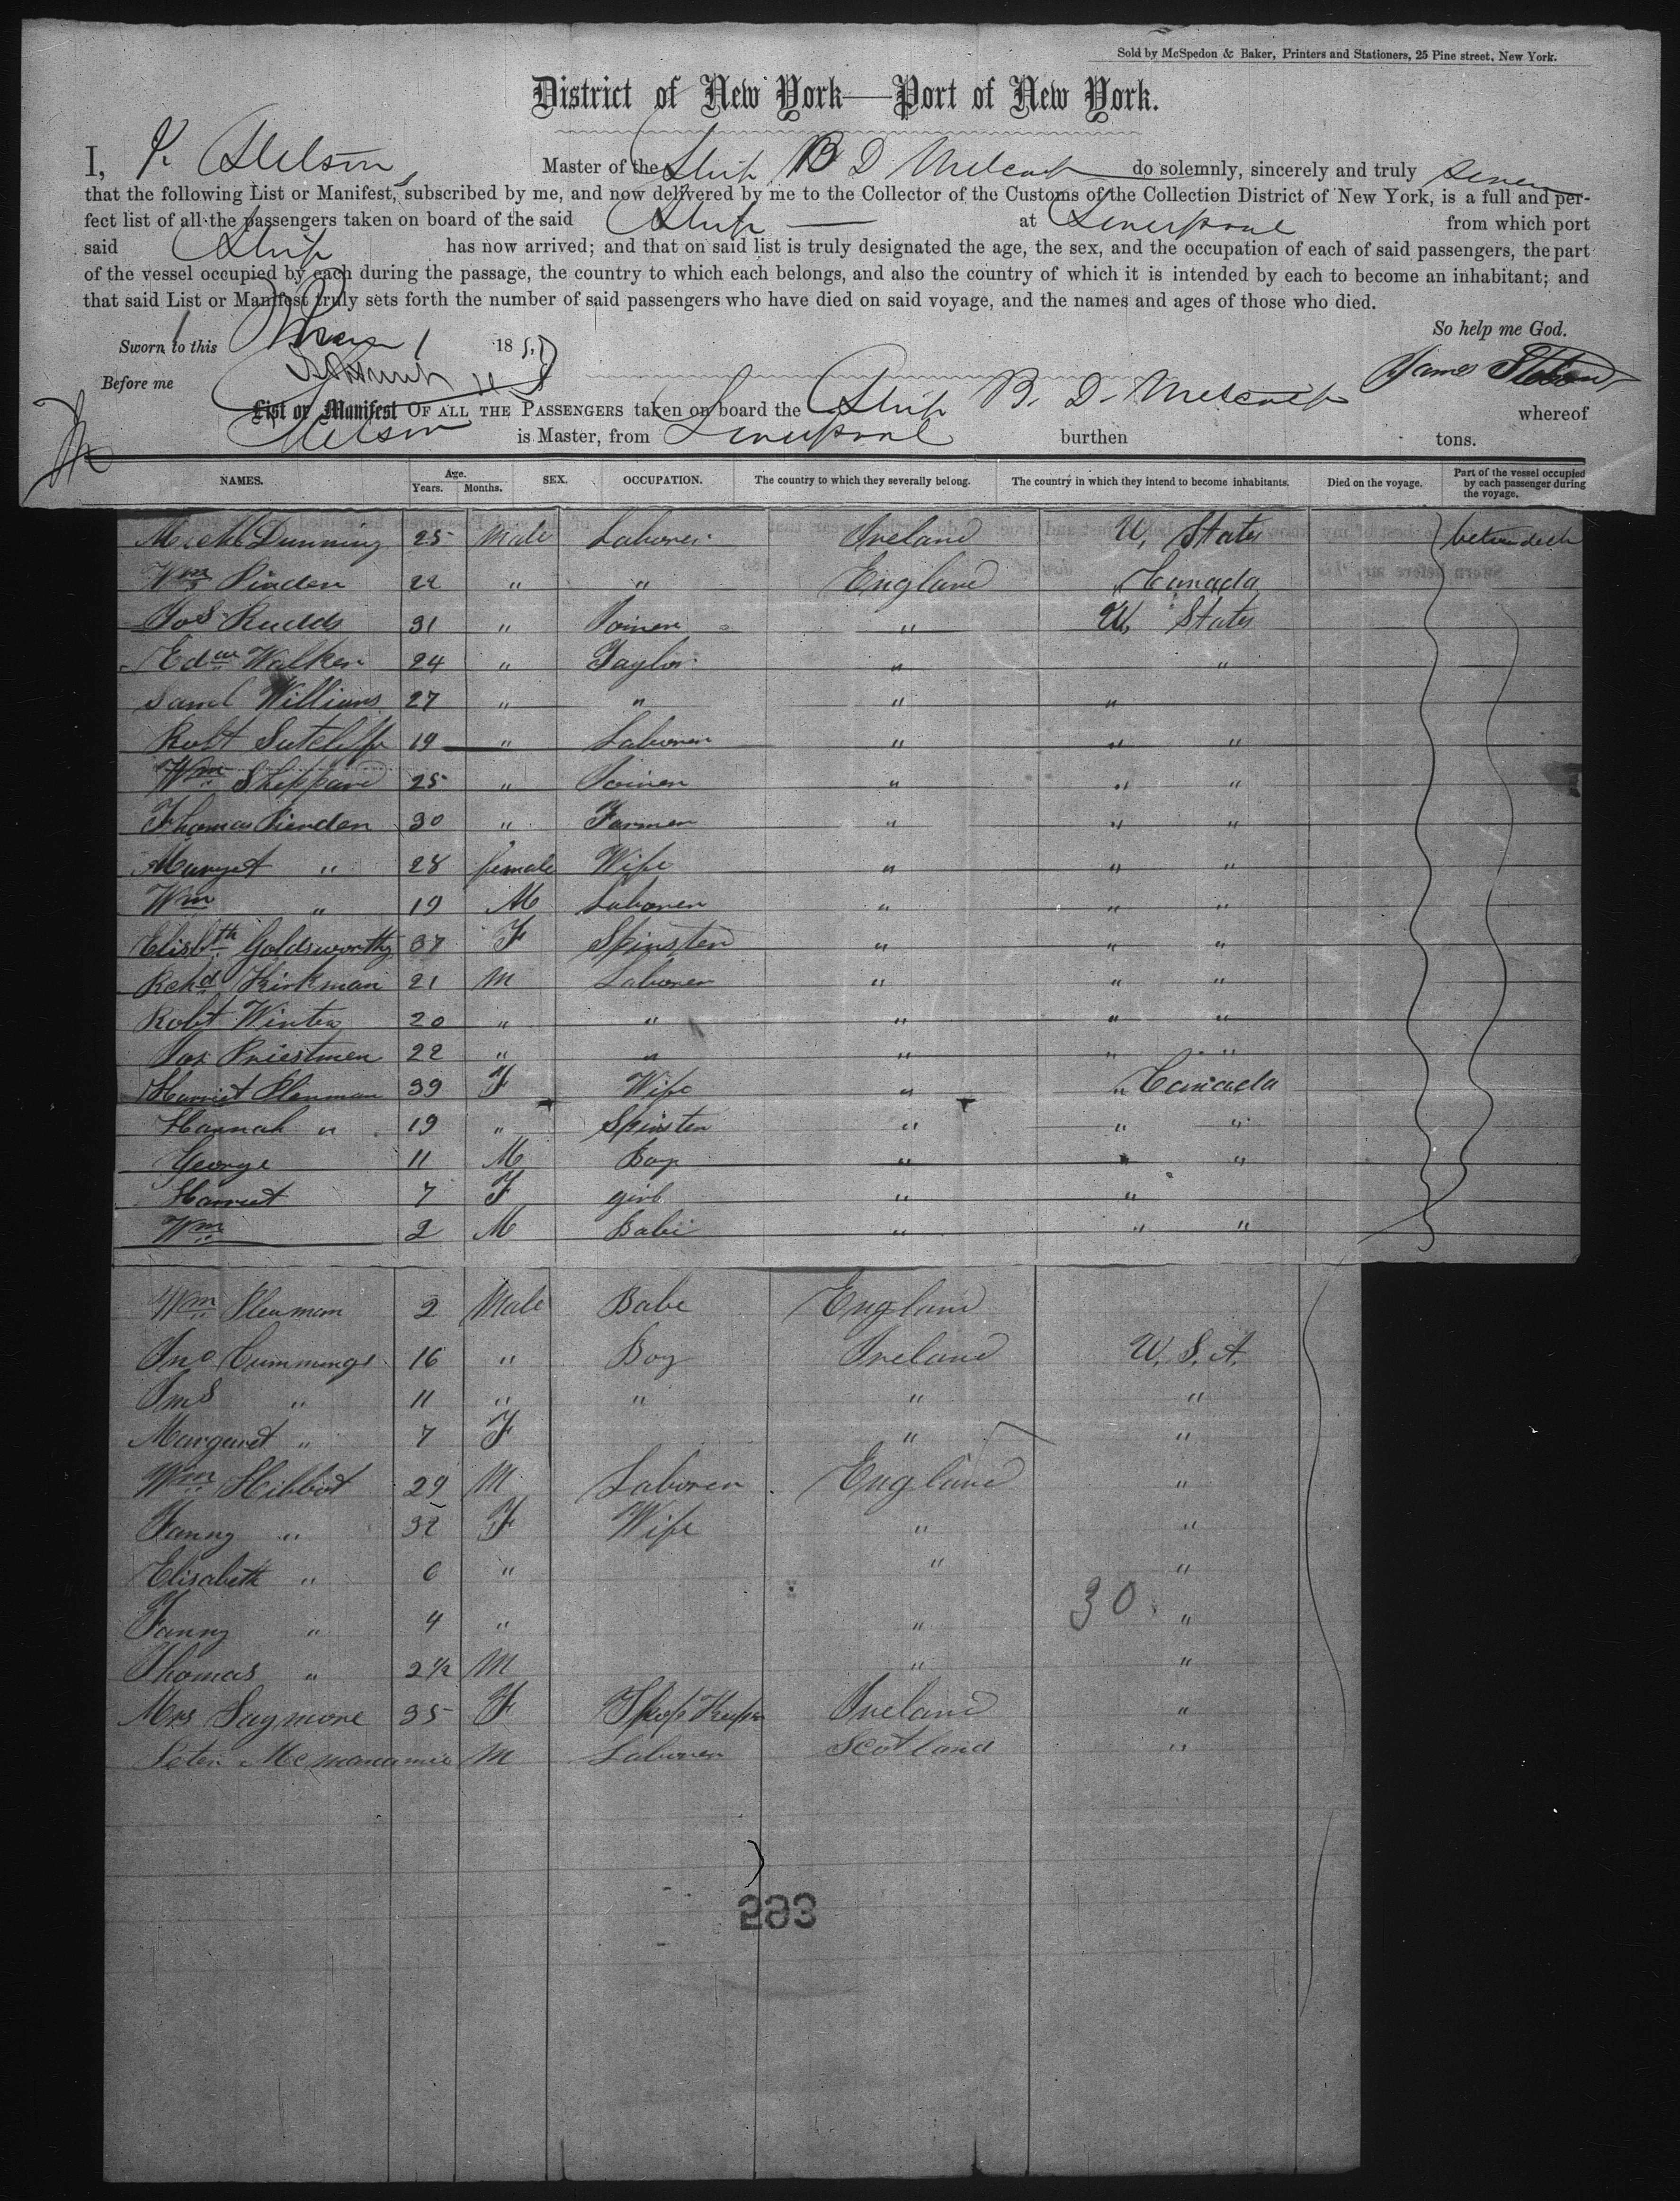 Sold by McSpedon & Baker, Printers and Stationers, 25 Pine street, New York.
District of New York—Port of New York.
I, J. Stetson, Master of the Ship B D Metcalf do solemnly, sincerely and truly swear
that the following List or Manifest, subscribed by me, and now delivered by me to the Collector of the Customs of the Collection District of New York, is a full and per-
fect list of all the passengers taken on board of the said Ship at Liverpool from which port
said Ship has now arrived; and that on said list is truly designated the age, the sex, and the occupation of each of said passengers, the part
of the vessel occupied by each during the passage, the country to which each belongs, and also the country of which it is intended by each to become an inhabitant; and
that said List or Manifest truly sets forth the number of said passengers who have died on said voyage, and the names and ages of those who died.
So help me God.
Sworn to this 1 185
Before me James Stetson
List or Manifest OF ALL THE PASSENGERS taken on board the Ship B. D. Metcalf whereof
Stetson is Master, from Liverpool burthen tons.
NAMES. Age. Years. Months. SEX. OCCUPATION. The country to which they severally belong. The country in which they intend to become inhabitants. Died on the voyage. Part of the vessel occupied by each passenger during the voyage.
Michl Dunning 25 Male Laborer Ireland U. States between deck
Wm Pinden 22 " " England " Canada
Jos Rudds 31 " Joiner " U. States
Edw Walker 24 " Taylor " "
Saml Williams 27 " " " "
Robt Sutcliffe 19 " Laborer " " "
Wm Sheppard 25 " Joiner " " "
Thomas Pienden 30 " Farmer " " "
Margat " 28 female Wife " " "
Wm " 19 M Laborer " " "
Elisbth Goldsworthy 37 F Spinster " " "
Rchd Kirkman 21 M Laborer " " "
Robt Winter 20 " " " " "
Jas Priestmen 22 " " " " "
Harriet Plenman 39 F Wife " " Canada
Hannah " 19 " Spinster " " "
George 11 M Boy " " "
Harriet 7 F girl " "
Wm 2 M Babe " " "
Wm Plenman 2 Male Babe England
Jno Cummings 16 " Boy Ireland U. S. A.
Jms " 11 " " " "
Margaret " 7 F " "
Wm Hibbot 29 M Laborer England "
Fanny " 32 F Wife " "
Elisabeth " 6 " " "
Fanny " 4 " " 30 "
Thomas " 2½ M " "
Mrs Sagmore 35 F Shop Keeper Ireland "
Peter Mcmanamie M Laborer Scotland "
293